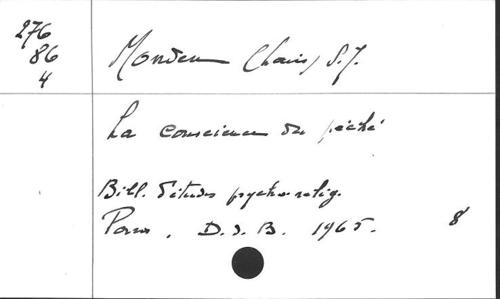 276
86
4
Monden (Louis) S.J.
La conscience du péché
Bibl. d'études psycho-relig.
Paris. D.d.B. 1965. 8